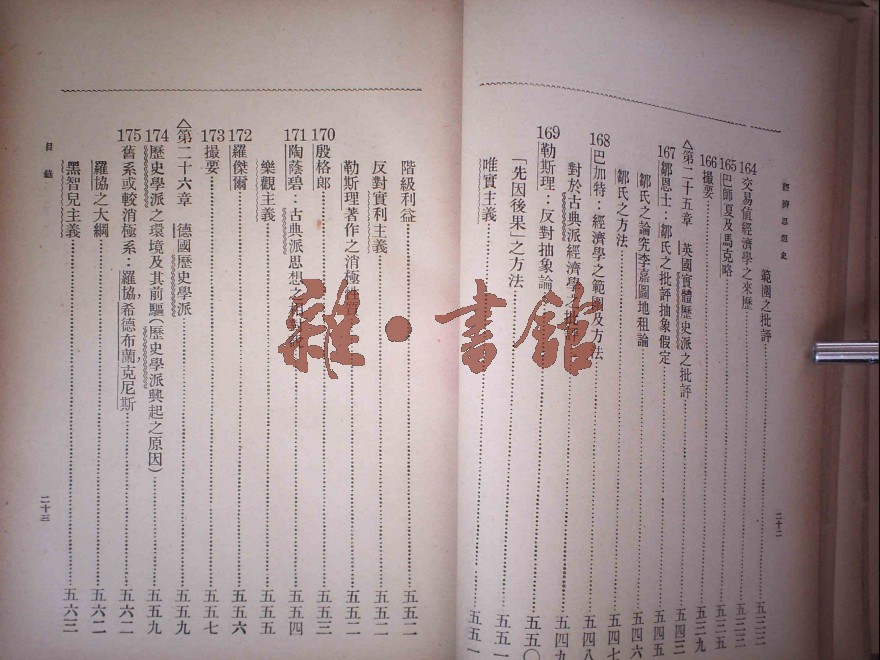 經濟思想史
範圍之批評……五三三
164 交易値經濟學之來歷……五三三
165 巴師夏及馬克略……五三五
166 撮要……五三九
△第二十五章 英國實體歷史派之批評……五四三
167 鄒恩士：鄒氏之批評抽象假定……五四五
鄒氏之論究李嘉圖地租論……五四六
鄒氏之方法……五四七
168 巴加特：經濟學之範圍及方法……五四八
對於古典派經濟學之批評……五四九
169 勒斯理：反對抽象論……五五〇
「先因後果」之方法……五五一
唯實主義……五五一
二十二
階級利益……五五二
反對實利主義……五五二
勒斯理著作之消極性質……五五二
170 殷格郎……五五三
171 陶蔭碧：古典派思想之相對說……五五四
樂觀主義……五五五
172 羅傑爾……五五六
173 撮要……五五七
△第二十六章 德國歷史學派……五五九
174 歷史學派之環境及其前驅(歷史學派興起之原因)……五五九
175 舊系或較消極系：羅協，希德布蘭克尼斯……五六二
羅協之大綱……五六二
黑智兒主義……五六三
目錄
二十三
雜·書館